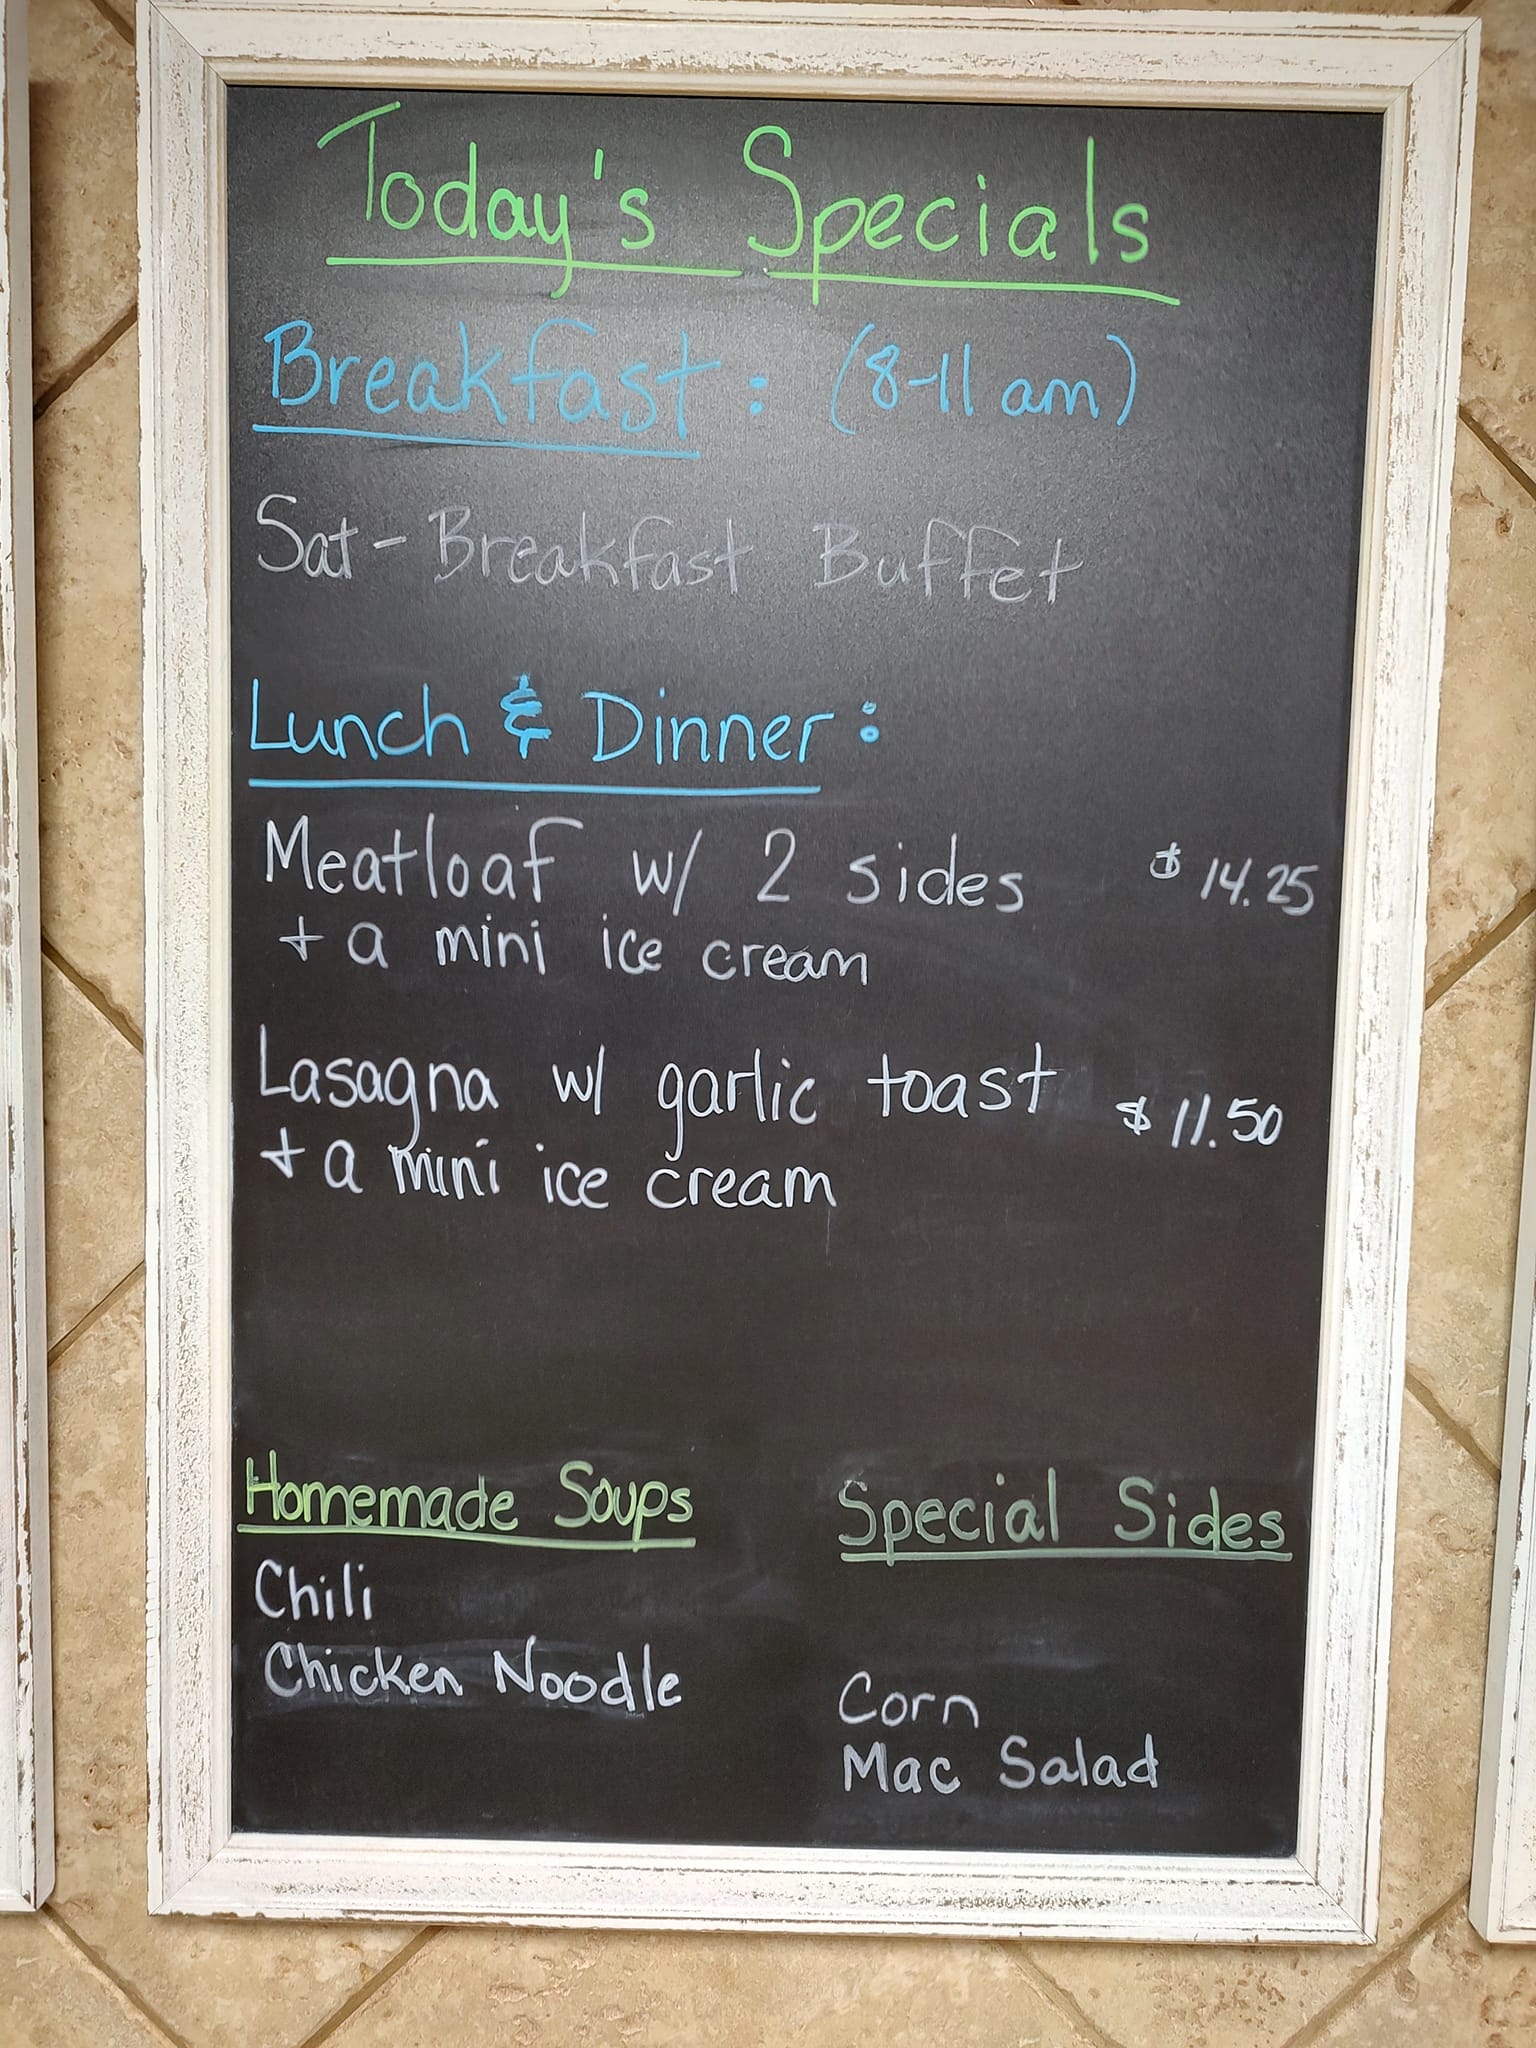 Today's Specials
Breakfast: (8-11 am)
Sat - Breakfast Buffet
Lunch & Dinner:
Meatloaf w/ 2 sides $14.25
+ a mini ice cream
Lasagna w/ garlic toast $11.50
+ a mini ice cream
Homemade Soups
Chili
Chicken Noodle
Special Sides
Corn
Mac Salad